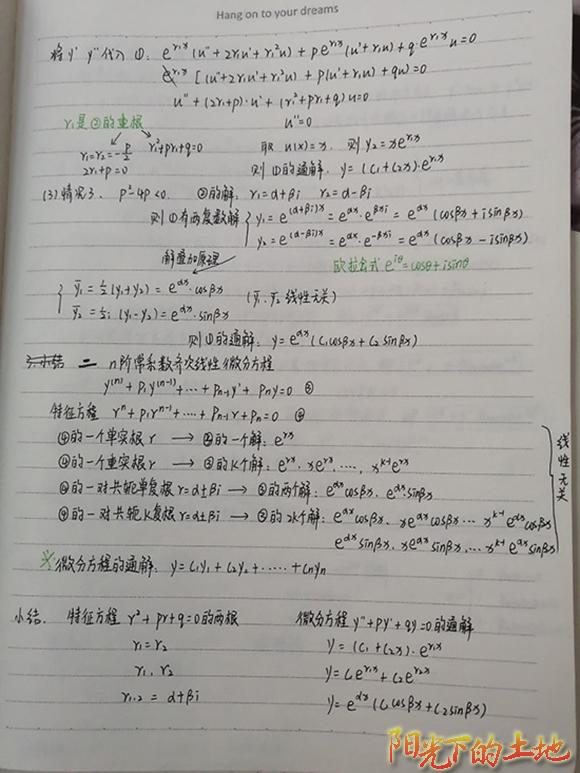 Hang on to your dreams
将y' y''代入①: e^{r₁x}(u''+2r₁u'+r₁²u)+pe^{r₁x}(u'+r₁u)+q·e^{r₁x}u=0
e^{r₁x}[(u''+2r₁u'+r₁²u)+p(u'+r₁u)+qu]=0
u''+(2r₁+p)·u'+(r₁²+pr₁+q)u=0
r₁是②的重根 u''=0
r₁=r₂=-p/2 r₁²+pr₁+q=0 取 u(x)=x, 则 y₂=xe^{r₁x}
2r₁+p=0 则①的通解: y=(C₁+C₂x)·e^{r₁x}
(3) 情况3. p²-4p<0. ②的解: r₁=α+βi r₂=α-βi
则①有两复数解 { y₁=e^{(α+βi)x}=e^{αx}·e^{βxi}=e^{αx}(cosβx+isinβx)
y₂=e^{(α-βi)x}=e^{αx}·e^{-βxi}=e^{αx}(cosβx-isinβx)
解叠加原理 欧拉公式 e^{iθ}=cosθ+isinθ
{ ȳ₁=½(y₁+y₂)=e^{αx}·cosβx (ȳ₁, ȳ₂ 线性无关)
ȳ₂=½i (y₁-y₂)=e^{αx}·sinβx
则①的通解: y=e^{αx}(C₁cosβx+C₂sinβx)
二 n阶常系数齐次线性微分方程
y^{(n)}+p₁y^{(n-1)}+…+pₙ₋₁y'+pₙy=0 ③
特征方程 rⁿ+p₁rⁿ⁻¹+…+pₙ₋₁r+pₙ=0 ④
④的一个单实根r → ③的一个解: e^{rx}
④的一个重实根r → ③的k个解: e^{rx}, xe^{rx}, …, x^{k-1}e^{rx}
④的一对共轭单复根 r=α±βi → ③的两个解: e^{αx}cosβx, e^{αx}sinβx
④的一对共轭k复根 r=α±βi → ③的2k个解: e^{αx}cosβx, xe^{αx}cosβx … x^{k-1}e^{αx}cosβx
e^{αx}sinβx, xe^{αx}sinβx, … x^{k-1}e^{αx}sinβx
线性无关
※微分方程的通解: y=C₁y₁+C₂y₂+……+Cₙyₙ
小结. 特征方程 r²+pr+q=0的两根 微分方程 y''+py'+qy=0的通解
r₁=r₂ y=(C₁+C₂x)·e^{r₁x}
r₁, r₂ y=C₁e^{r₁x}+C₂e^{r₂x}
r₁,₂=α+βi y=e^{αx}(C₁cosβx+C₂sinβx)
阳光下的土地